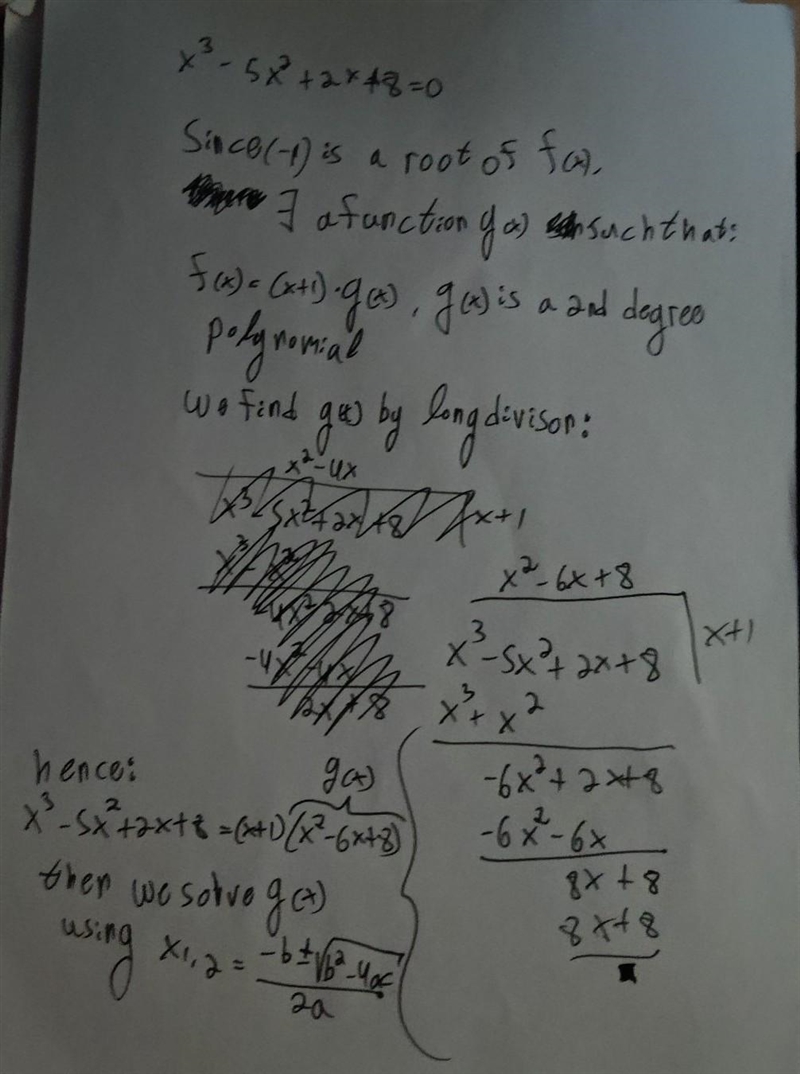 x³ - 5x² + 2x + 8 = 0
Since (-1) is a root of f(x),
∃ a function g(x) such that:
f(x) = (x+1) · g(x), g(x) is a 2nd degree
polynomial
We find g(x) by long divison:
x² - 4x
x³ - 5x² + 2x + 8 | x+1
-4x² 2x + 8
-4x² - 4x
2x + 8
x² - 6x + 8
x³ - 5x² + 2x + 8 | x+1
x³ + x²
-6x² + 2x + 8
-6x² - 6x
8x + 8
8x + 8
hence:
g(x)
x³ - 5x² + 2x + 8 = (x+1)(x² - 6x + 8)
then we solve g(x)
using x1,2 = (-b ± √(b² - 4ac)) / 2a